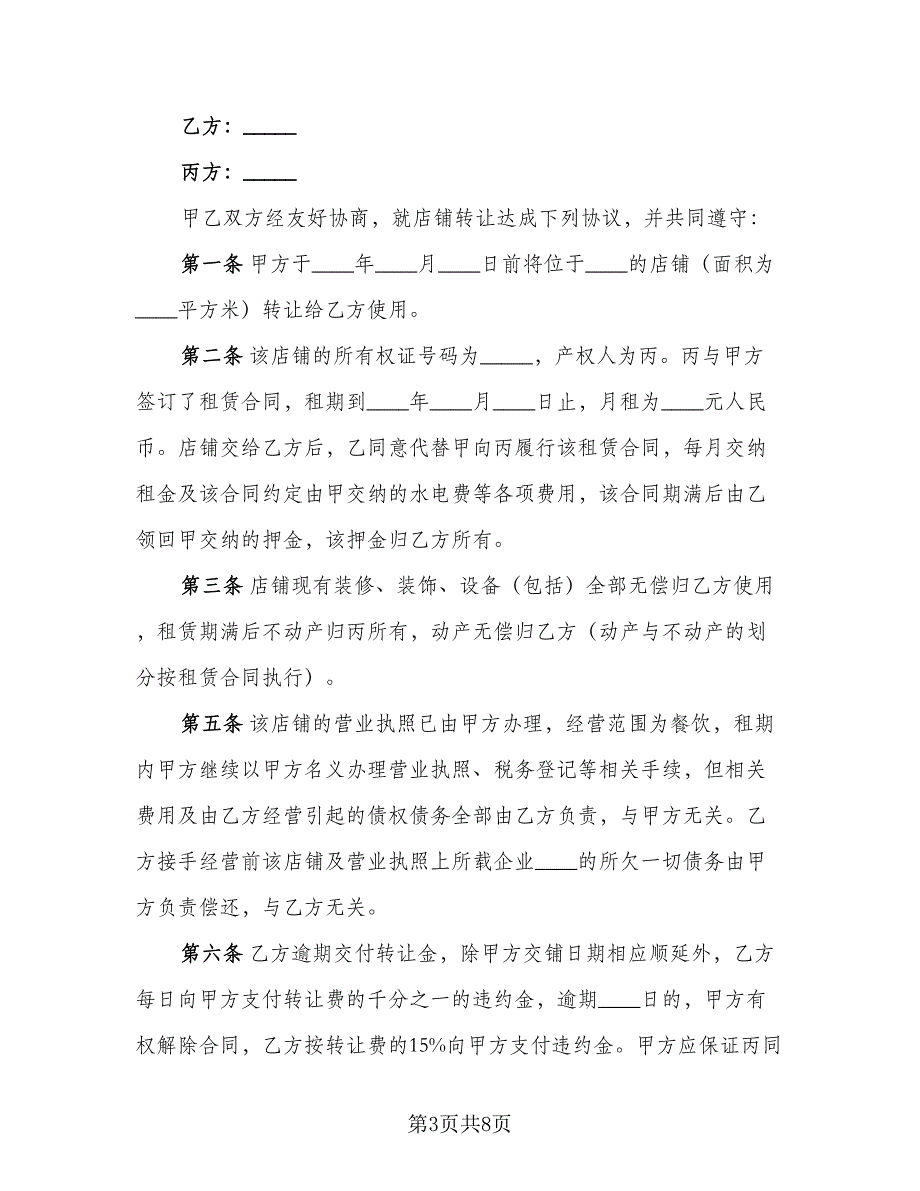 乙方：_____
丙方：_____
甲乙双方经友好协商，就店铺转让达成下列协议，并共同遵守：
第一条 甲方于____年____月____日前将位于____的店铺（面积为
____平方米）转让给乙方使用。
第二条 该店铺的所有权证号码为_____，产权人为丙。丙与甲方
签订了租赁合同，租期到____年____月____日止，月租为____元人民
币。店铺交给乙方后，乙同意代替甲向丙履行该租赁合同，每月交纳
租金及该合同约定由甲交纳的水电费等各项费用，该合同期满后由乙
领回甲交纳的押金，该押金归乙方所有。
第三条 店铺现有装修、装饰、设备（包括）全部无偿归乙方使用
，租赁期满后不动产归丙所有，动产无偿归乙方（动产与不动产的划
分按租赁合同执行）。
第五条 该店铺的营业执照已由甲方办理，经营范围为餐饮，租期
内甲方继续以甲方名义办理营业执照、税务登记等相关手续，但相关
费用及由乙方经营引起的债权债务全部由乙方负责，与甲方无关。乙
方接手经营前该店铺及营业执照上所载企业____的所欠一切债务由甲
方负责偿还，与乙方无关。
第六条 乙方逾期交付转让金，除甲方交铺日期相应顺延外，乙方
每日向甲方支付转让费的千分之一的违约金，逾期____日的，甲方有
权解除合同，乙方按转让费的15%向甲方支付违约金。甲方应保证丙同
第3页共8页